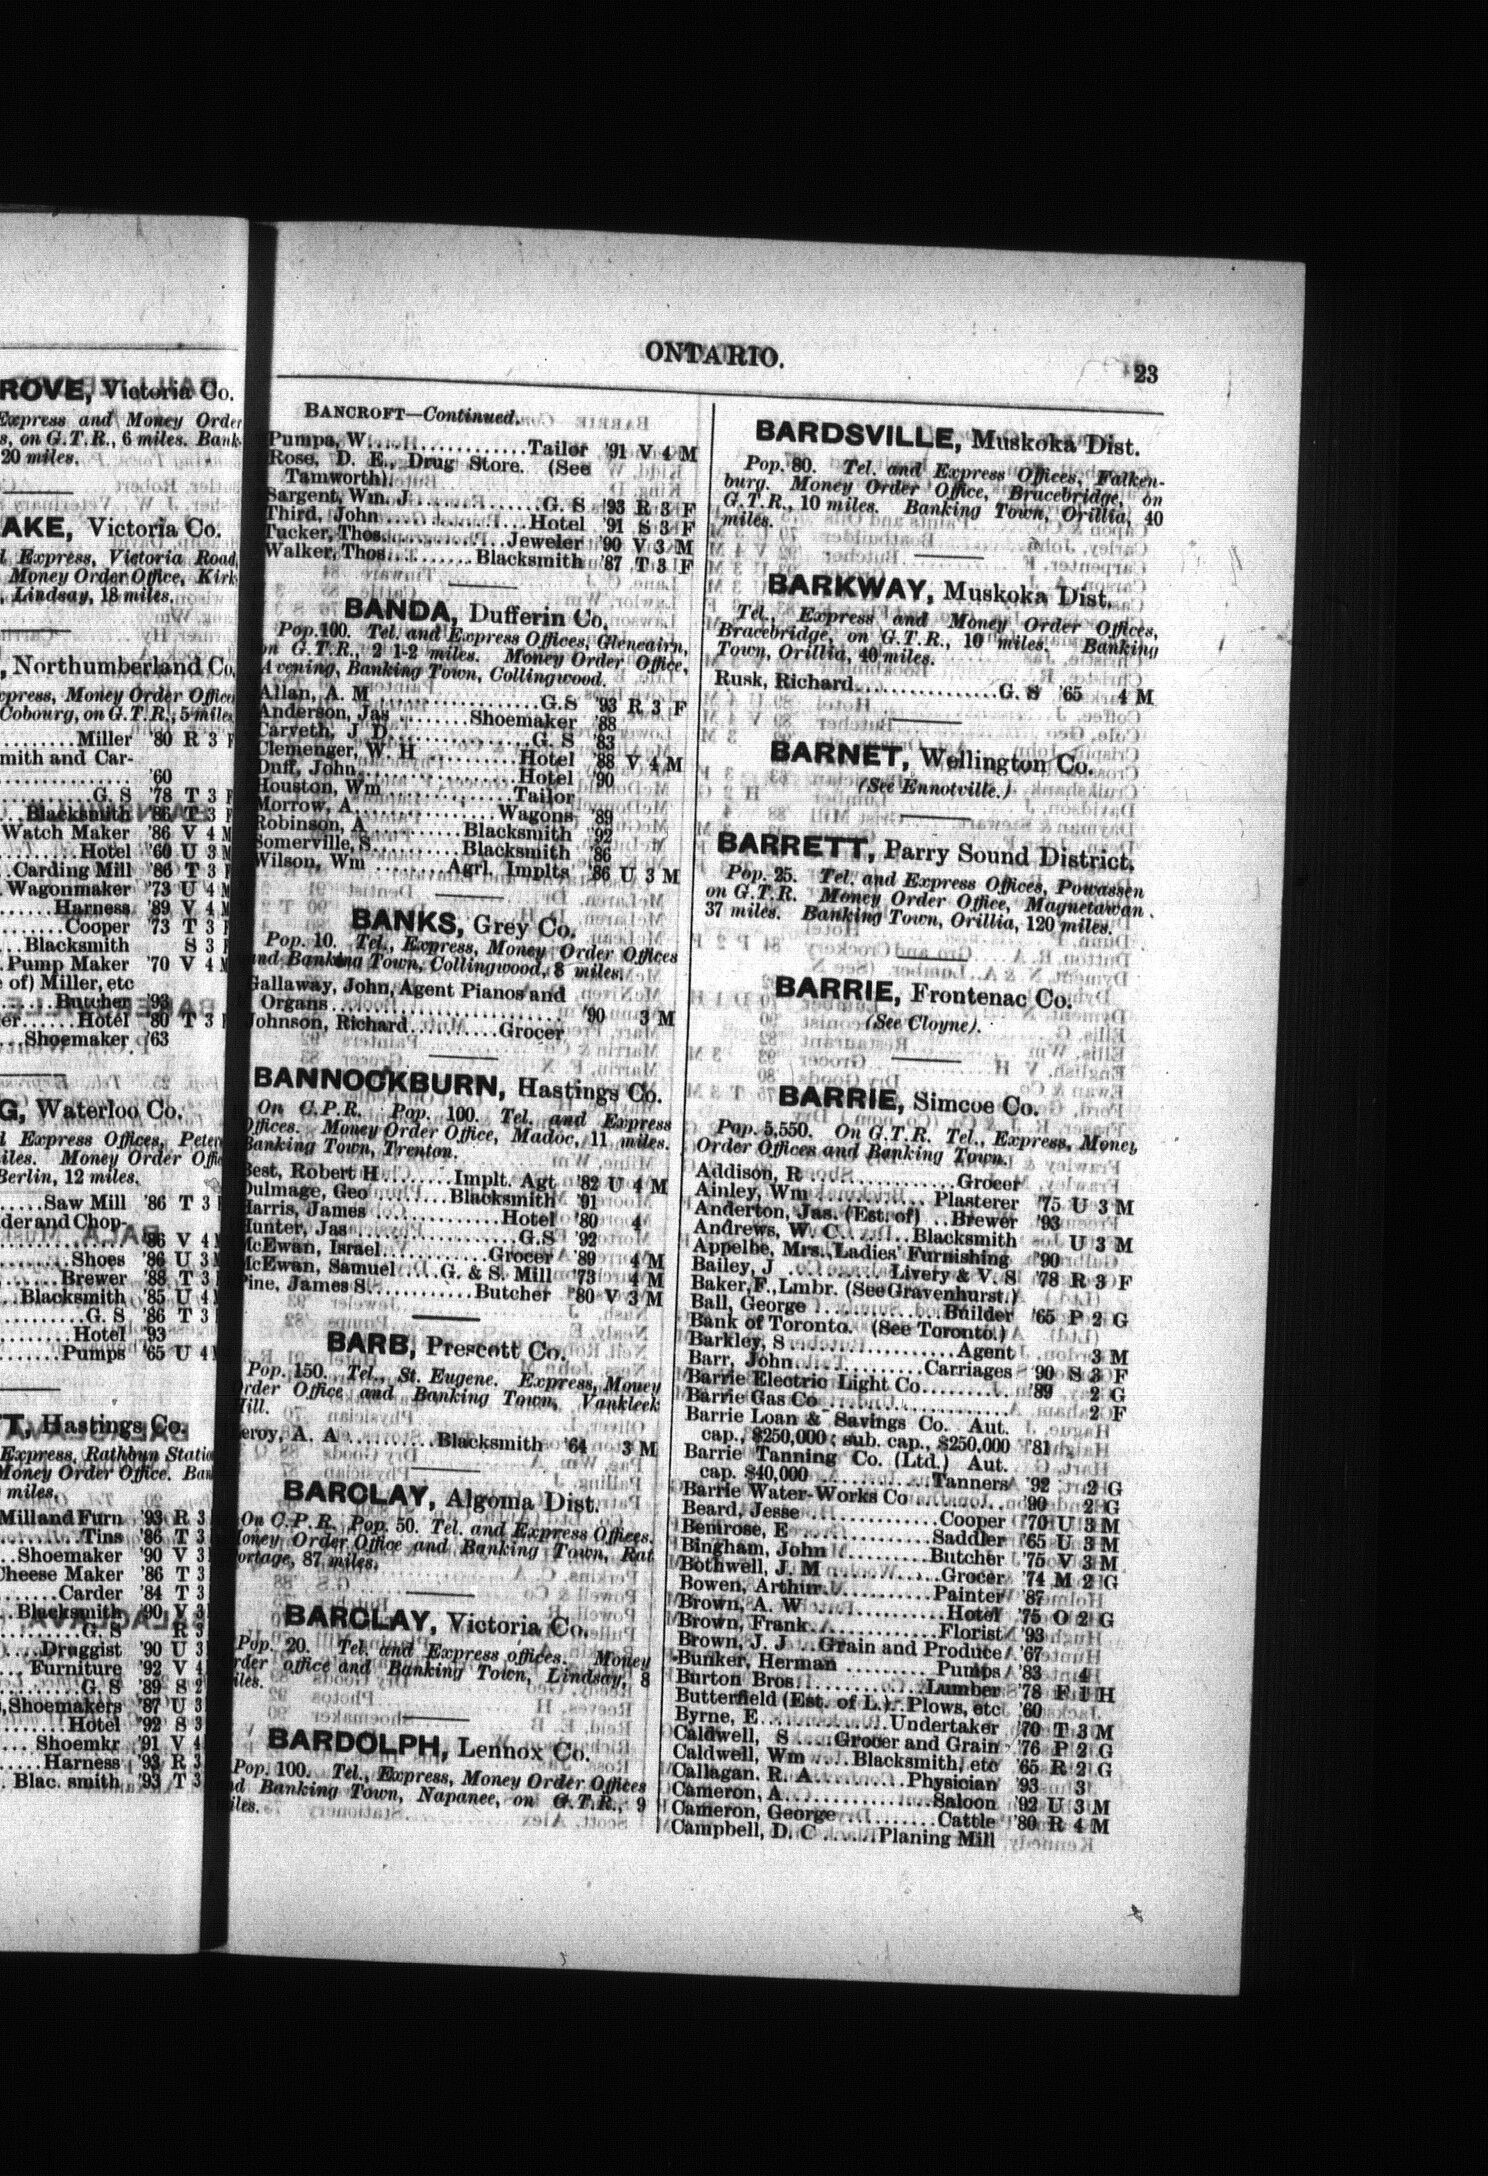 ROVE, Victoria Co.
Express and Money Order
s, on G.T.R., 6 miles. Bank-
20 miles.
AKE, Victoria Co.
l Express, Victoria Road,
Money Order Office, Kirk
, Lindsay, 18 miles.
, Northumberland Co.
xpress, Money Order Office
Cobourg, on G.T.R., 5 miles
Miller '80 R 3 F
mith and Car-
'60
G. S '78 T 3 F
Blacksmith '86 T 3 F
Watch Maker '86 V 4 M
Hotel '60 U 3 M
Carding Mill '86 T 3 F
Wagonmaker '73 U 4 M
Harness '89 V 4 M
Cooper '73 T 3 F
Blacksmith S 3 F
Pump Maker '70 V 4 M
e of) Miller, etc
Butcher '93
er......Hotel '80 T 3 F
Shoemaker '63
G, Waterloo Co.
l Express Offices, Peters
iles. Money Order Offic
Berlin, 12 miles.
Saw Mill '86 T 3
der and Chop-
'86 V 4 M
Shoes '86 U 3 M
Brewer '88 T 3
Blacksmith '85 U 4
G. S '86 T 3
Hotel '93
Pumps '65 U 4
T, Hastings Co.
Express, Rathbun Statio
Money Order Office. Ban
miles.
Mill and Furn '93 R 3
Tins '86 T 3
Shoemaker '90 V 3
Cheese Maker '86 T 3
Carder '84 T 3
Blacksmith '90 V 3
G. S R 3
Druggist '90 U 3
Furniture '92 V 4
G. S '89 S 2
, Shoemakers '87 U 3
Hotel '92 S 3
Shoemkr '91 V 4
Harness '93 R 3
Blac. smith '93 T 3
ONTARIO. 23
BANCROFT—Continued.
Pumpa, W..............Tailor '91 V 4 M
Rose, D. E., Drug Store. (See
Tamworth).
Sargent, Wm. J..............G. S '93 R 3 F
Third, John..............Hotel '91 S 3 F
Tucker, Thos..............Jeweler '90 V 3 M
Walker, Thos..........Blacksmith '87 T 3 F
BANDA, Dufferin Co.
Pop. 100. Tel. and Express Offices, Glencairn,
on G.T.R., 2 1-2 miles. Money Order Office,
Avening, Banking Town, Collingwood.
Allan, A. M..............G.S '93 R 3 F
Anderson, Jas..........Shoemaker '88
Carveth, J D..............G. S '83
Clemenger, W H..........Hotel '88 V 4 M
Duff, John..............Hotel '90
Houston, Wm..............Tailor
Morrow, A..............Wagons '89
Robinson, A..........Blacksmith '92
Somerville, S..........Blacksmith '86
Wilson, Wm..........Agrl. Implts '86 U 3 M
BANKS, Grey Co.
Pop. 10. Tel., Express, Money Order Offices
and Banking Town, Collingwood, 8 miles.
Gallaway, John, Agent Pianos and
Organs.............. '90 3 M
Johnson, Richard..........Grocer
BANNOCKBURN, Hastings Co.
On C.P.R. Pop. 100. Tel. and Express
Offices. Money Order Office, Madoc, 11 miles.
Banking Town, Trenton.
Best, Robert H........Implt. Agt '82 U 4 M
Dulmage, Geo..........Blacksmith '91
Harris, James..............Hotel '80 4
Hunter, Jas..............G.S '92
McEwan, Israel..........Grocer '89 4 M
McEwan, Samuel....G. & S. Mill '73 4 M
Pine, James S..........Butcher '80 V 3 M
BARB, Prescott Co.
Pop. 150. Tel., St. Eugene. Express, Money
Order Office and Banking Town, Vankleek
Hill.
eroy, A. A..........Blacksmith '64 3 M
BARCLAY, Algoma Dist.
On C.P.R. Pop. 50. Tel. and Express Offices.
Money Order Office and Banking Town, Rat
Portage, 87 miles.
BARCLAY, Victoria Co.
Pop. 20. Tel. and Express offices. Money
Order office and Banking Town, Lindsay, 8
miles.
BARDOLPH, Lennox Co.
Pop. 100. Tel., Express, Money Order Offices
and Banking Town, Napanee, on G.T.R., 9
miles.
BARDSVILLE, Muskoka Dist.
Pop. 80. Tel. and Express Offices, Falken-
burg. Money Order Office, Bracebridge, on
G.T.R., 10 miles. Banking Town, Orillia, 40
miles.
BARKWAY, Muskoka Dist.
Tel., Express and Money Order Offices,
Bracebridge, on G.T.R., 10 miles. Banking
Town, Orillia, 40 miles.
Rusk, Richard..............G. S '65 4 M
BARNET, Wellington Co.
(See Ennotville.)
BARRETT, Parry Sound District.
Pop. 25. Tel. and Express Offices, Powassen
on G.T.R. Money Order Office, Magnetawan
37 miles. Banking Town, Orillia, 120 miles.
BARRIE, Frontenac Co.
(See Cloyne).
BARRIE, Simcoe Co.
Pop. 5,550. On G.T.R. Tel., Express, Money
Order Offices and Banking Town.
Addison, R..............Grocer
Ainley, Wm..............Plasterer '75 U 3 M
Anderton, Jas. (Est. of)..Brewer '93
Andrews, W. C..........Blacksmith U 3 M
Appelbe, Mrs., Ladies' Furnishing '90
Bailey, J..........Livery & V. S '78 R 3 F
Baker, F., Lmbr. (See Gravenhurst.)
Ball, George..............Builder '65 P 2 G
Bank of Toronto. (See Toronto.)
Barkley, S..............Agent 3 M
Barr, John..............Carriages '90 S 3 F
Barrie Electric Light Co........ '89 2 G
Barrie Gas Co.............. 2 F
Barrie Loan & Savings Co. Aut.
cap., $250,000; sub. cap., $250,000 '81
Barrie Tanning Co. (Ltd.) Aut.
cap. $40,000..............Tanners '92 2 G
Barrie Water-Works Co........ '90 2 G
Beard, Jesse..............Cooper '70 U 3 M
Bemrose, E..............Saddler '65 U 3 M
Bingham, John..........Butcher '75 V 3 M
Bothwell, J. M..........Grocer '74 M 2 G
Bowen, Arthur..........Painter '87
Brown, A. W..............Hotel '75 O 2 G
Brown, Frank..............Florist '93
Brown, J. J...Grain and Produce '67
Bunker, Herman..........Pumps '83 4
Burton Bros..............Lumber '78 F 1 H
Butterfield (Est. of L.)..Plows, etc '60
Byrne, E..............Undertaker '70 T 3 M
Caldwell, S....Grocer and Grain '76 P 2 G
Caldwell, Wm....Blacksmith, etc '65 R 2 G
Callagan, R. A..........Physician '93 3
Cameron, A..............Saloon '92 U 3 M
Cameron, George..........Cattle '80 R 4 M
Campbell, D. C......Planing Mill